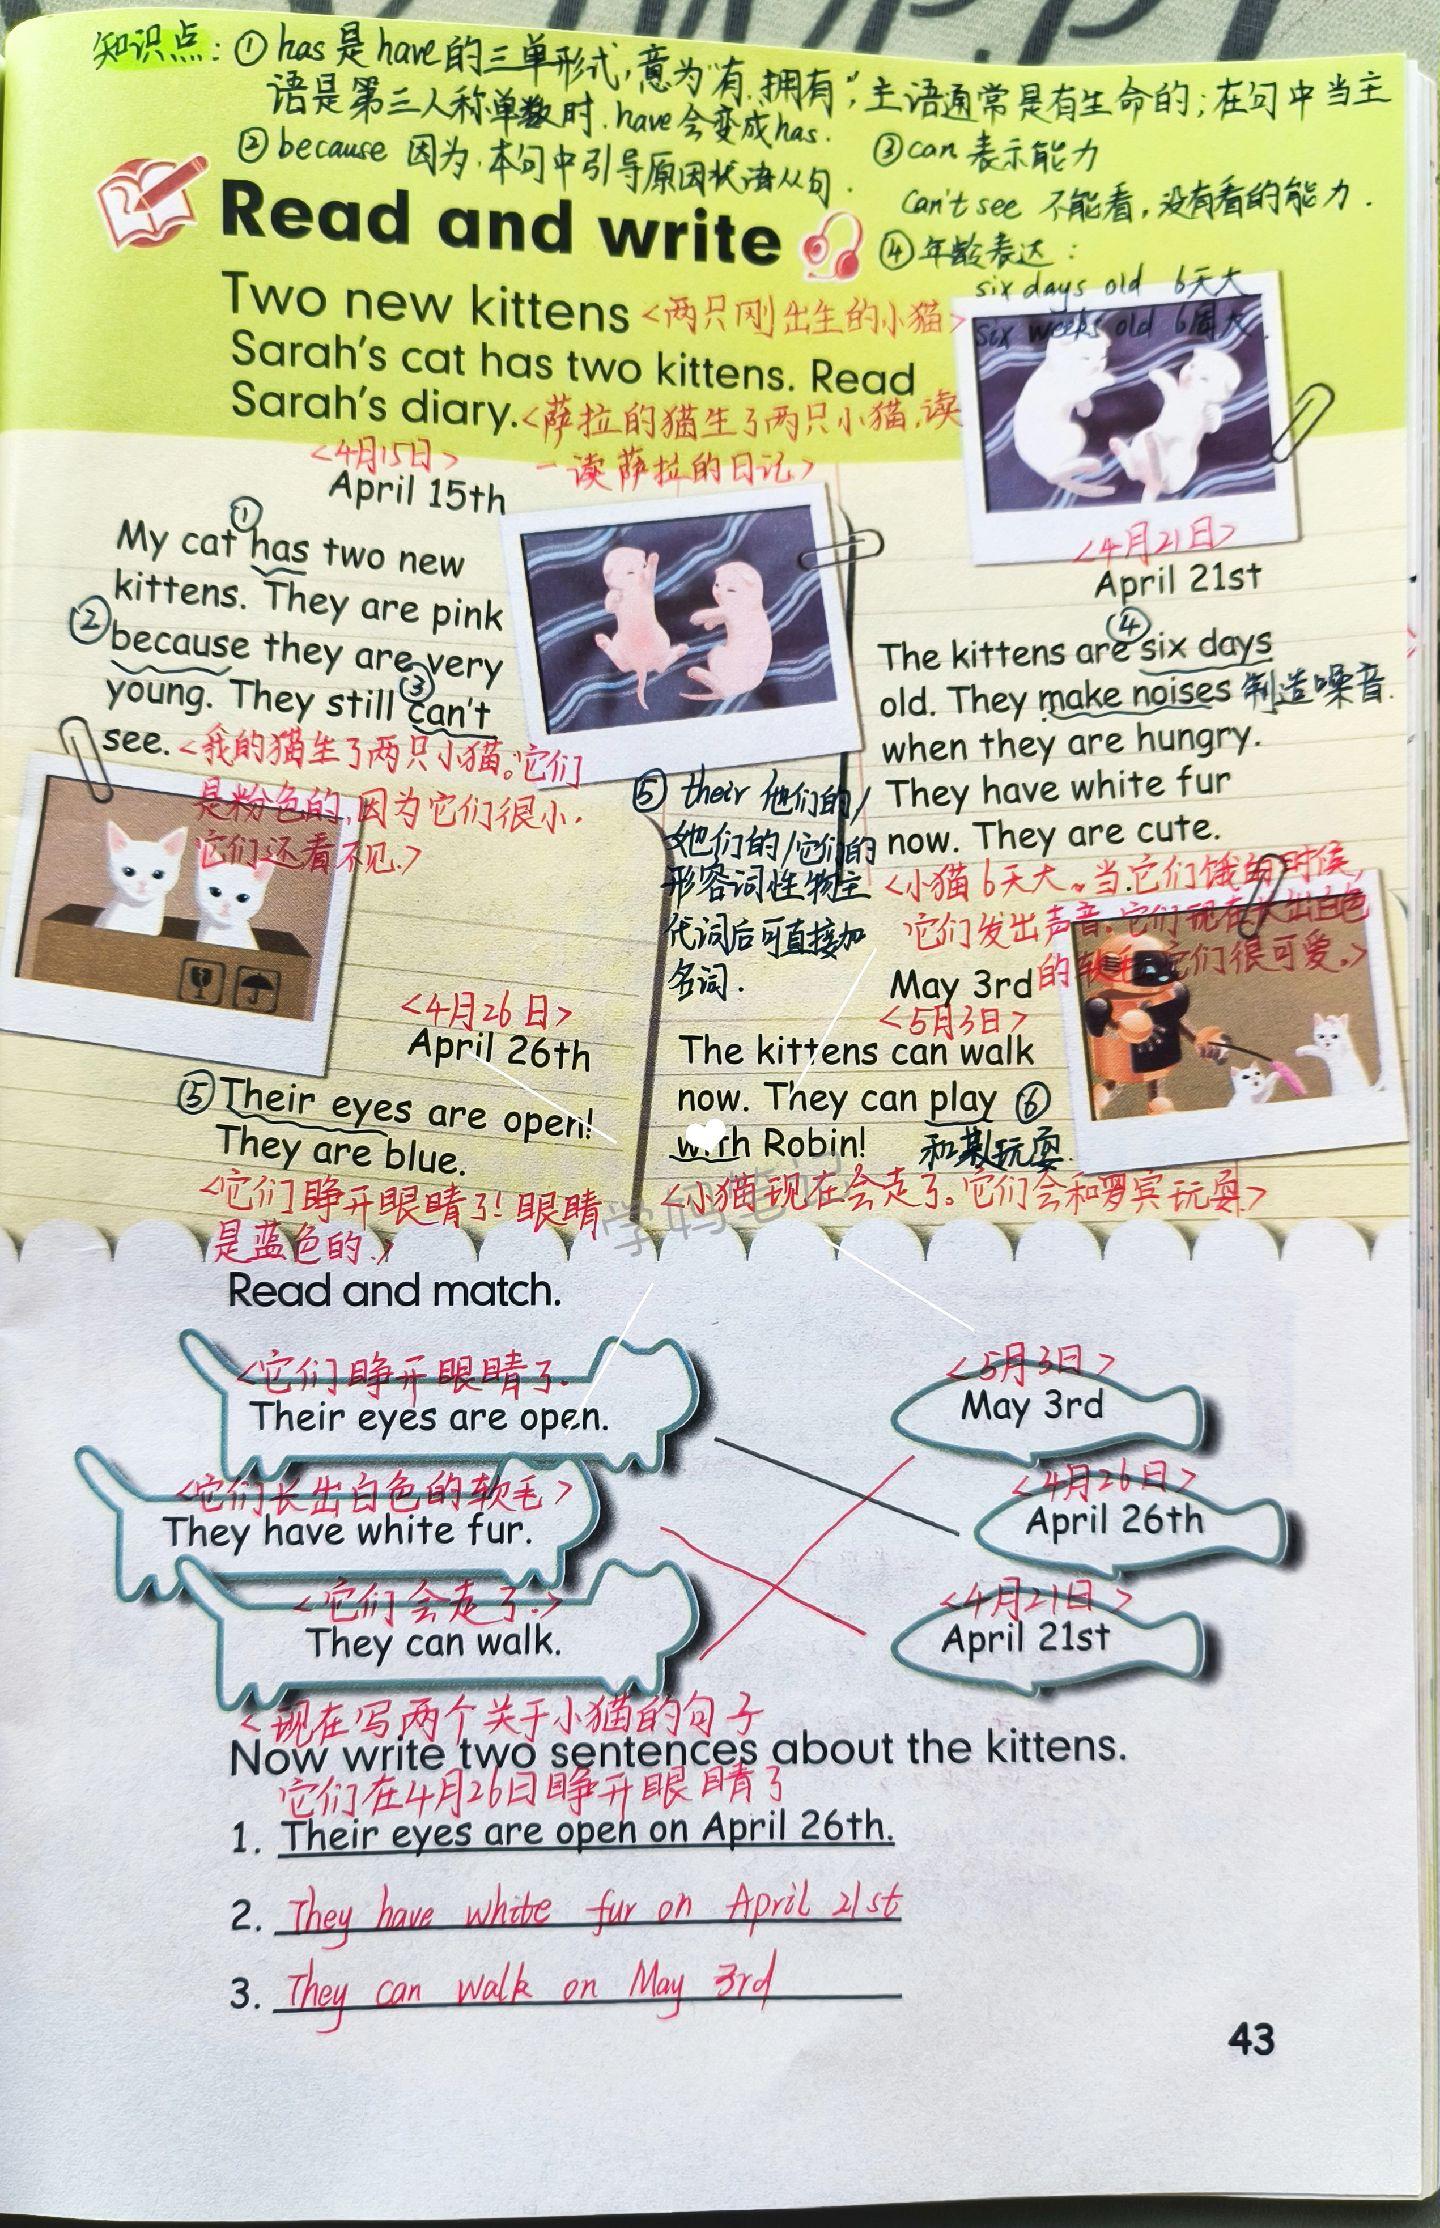 知识点：① has是have的三单形式，意为“有、拥有”，主语通常是有生命的；在句中当主
语是第三人称单数时.have会变成has.
② because 因为.本句中引导原因状语从句.
③can 表示能力
can't see 不能看，没有看的能力.
④年龄表达：
six days old 6天大
six weeks old 6周大.
Read and write
Two new kittens <两只刚出生的小猫>
Sarah's cat has two kittens. Read
Sarah's diary. <萨拉的猫生了两只小猫,读
一读萨拉的日记>
<4月15日>
April 15th
①
My cat has two new
kittens. They are pink
② because they are very
③
young. They still can't
see. <我的猫生了两只小猫。它们
是粉色的,因为它们很小.
它们还看不见.>
<4月21日>
April 21st
④
The kittens are six days
old. They make noises 制造噪音.
when they are hungry.
They have white fur
now. They are cute.
<小猫6天大。当它们饿的时候,
它们发出声音.它们现在长出白色
的软毛,它们很可爱。>
⑤ their 他们的/
她们的/它们的
形容词性物主
代词后可直接加
名词.
<4月26日>
April 26th
⑤ Their eyes are open!
They are blue.
<它们睁开眼睛了!眼睛
是蓝色的.>
May 3rd
<5月3日>
The kittens can walk
now. They can play ⑥
with Robin! 和某玩耍.
<小猫现在会走了。它们会和罗宾玩耍>
学妈笔记
Read and match.
<它们睁开眼睛了.
Their eyes are open.
<5月3日>
May 3rd
<它们长出白色的软毛>
They have white fur.
<4月26日>
April 26th
<它们会走了.>
They can walk.
<4月21日>
April 21st
<现在写两个关于小猫的句子
Now write two sentences about the kittens.
它们在4月26日睁开眼睛了
1. Their eyes are open on April 26th.
2. They have white fur on April 21st
3. They can walk on May 3rd
43